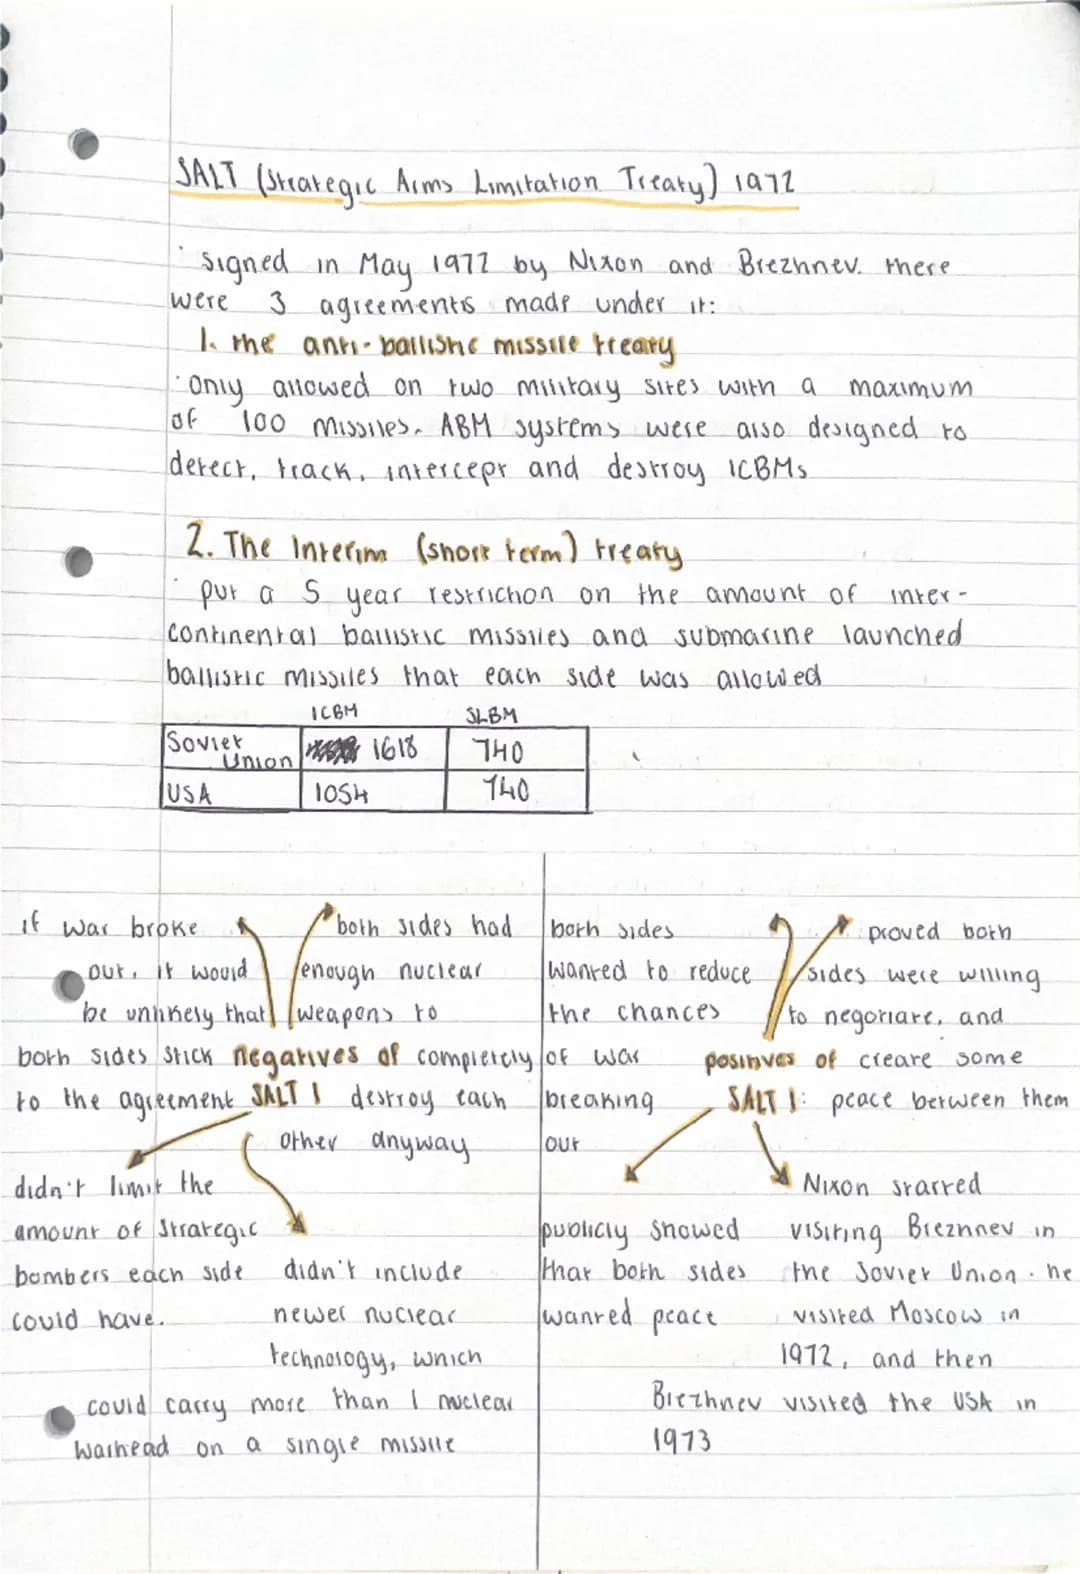 SALT (Strategic Arms Limitation Treaty) 1972
· signed in May 1972 by Nixon and Brezhnev. there
were 3 agreements made under it:
1. the anti-ballistic missile treaty
· only allowed on two military sites with a maximum
of 100 missiles. ABM systems were also designed to
detect, track, intercept and destroy ICBMs
2. The Interim (short term) treaty
· put a 5 year restriction on the amount of inter-
continental ballistic missiles and submarine launched
ballistic missiles that each side was allowed
ICBM SLBM
Soviet Union 1618 740
USA 1054 740
negatives of
SALT 1
if war broke
out, it would
be unlikely that
both sides stick
to the agreement
both sides had
enough nuclear
weapons to
completely
destroy each
other anyway
didn't limit the
amount of strategic
bombers each side
could have.
didn't include
newer nuclear
technology, which
could carry more than 1 nuclear
warhead on a single missile
positives of
SALT 1:
both sides
wanted to reduce
the chances
of war
breaking
out
proved both
sides were willing
to negotiate, and
create some
peace between them
publicly showed
that both sides
wanted peace
Nixon started
visiting Breznnev in
the Soviet Union. he
visited Moscow in
1972, and then
Brezhnev visited the USA in
1973